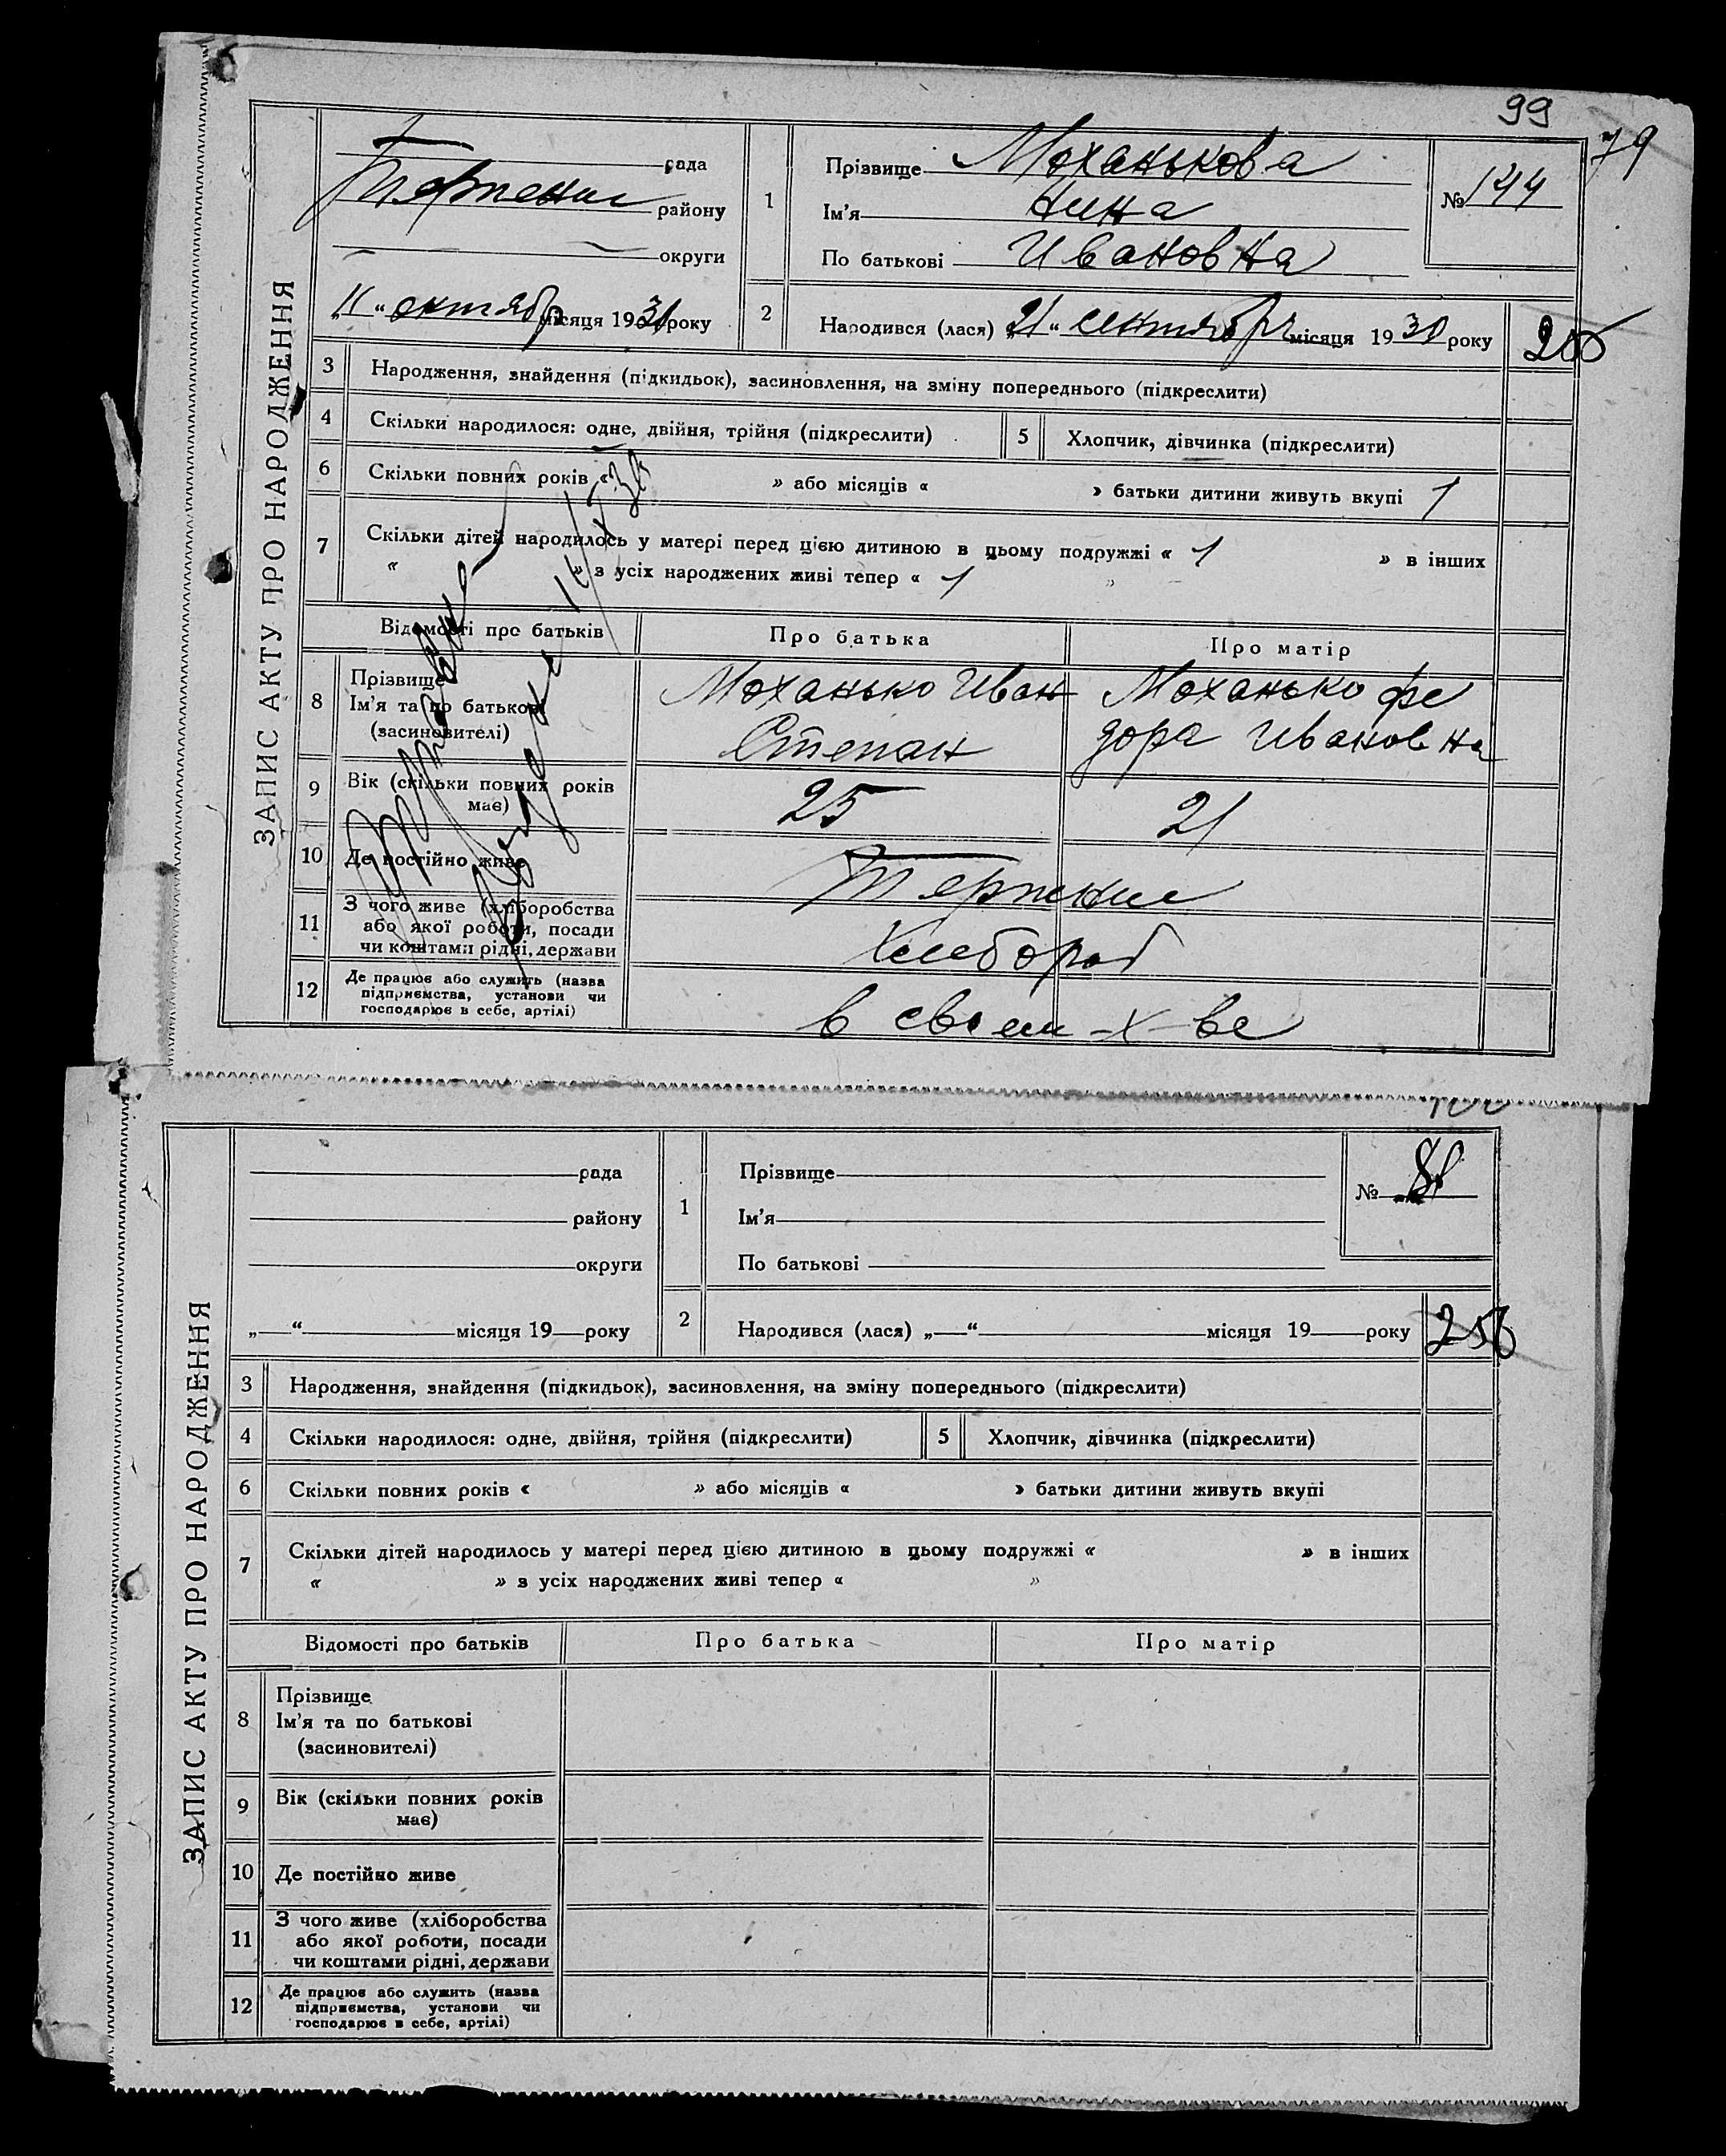 99
79
ЗАПИС АКТУ ПРО НАРОДЖЕННЯ
рада
району
округи
„11“ октябр місяця 1930 року
1
Прізвище Моханькова
Ім'я Нина
По батькові Ивановна
№ 144
2
Народився (лася) „21“ сентября місяця 1930 року
3 Народження, знайдення (підкидьок), засиновлення, на зміну попереднього (підкреслити)
4 Скільки народилося: одне, двійня, трійня (підкреслити)
5 Хлопчик, дівчинка (підкреслити)
6 Скільки повних років « » або місяців « » батьки дитини живуть вкупі 1
7 Скільки дітей народилось у матері перед цією дитиною в цьому подружжі « 1 » в інших
« » з усіх народжених живі тепер « 1 »
Відомості про батьків
Про батька
Про матір
8 Прізвище
Ім'я та по батькові
(засиновителі)
Моханько Иван
Степан
Моханько Фе
дора Ивановна
9 Вік (скільки повних років
має)
25
21
10 Де постійно живе
Терпение
11 З чого живе (хліборобства
або якої роботи, посади
чи коштами рідні, держави
Хлебороб
12 Де працює або служить (назва
підприємства, установи чи
господарює в себе, артілі)
в своем х-ве
ЗАПИС АКТУ ПРО НАРОДЖЕННЯ
рада
району
округи
„ “ місяця 19 року
1
Прізвище
Ім'я
По батькові
№
2
Народився (лася) „ “ місяця 19 року
256
3 Народження, знайдення (підкидьок), засиновлення, на зміну попереднього (підкреслити)
4 Скільки народилося: одне, двійня, трійня (підкреслити)
5 Хлопчик, дівчинка (підкреслити)
6 Скільки повних років « » або місяців « » батьки дитини живуть вкупі
7 Скільки дітей народилось у матері перед цією дитиною в цьому подружжі « » в інших
« » з усіх народжених живі тепер « »
Відомості про батьків
Про батька
Про матір
8 Прізвище
Ім'я та по батькові
(засиновителі)
9 Вік (скільки повних років
має)
10 Де постійно живе
11 З чого живе (хліборобства
або якої роботи, посади
чи коштами рідні, держави
12 Де працює або служить (назва
підприємства, установи чи
господарює в себе, артілі)